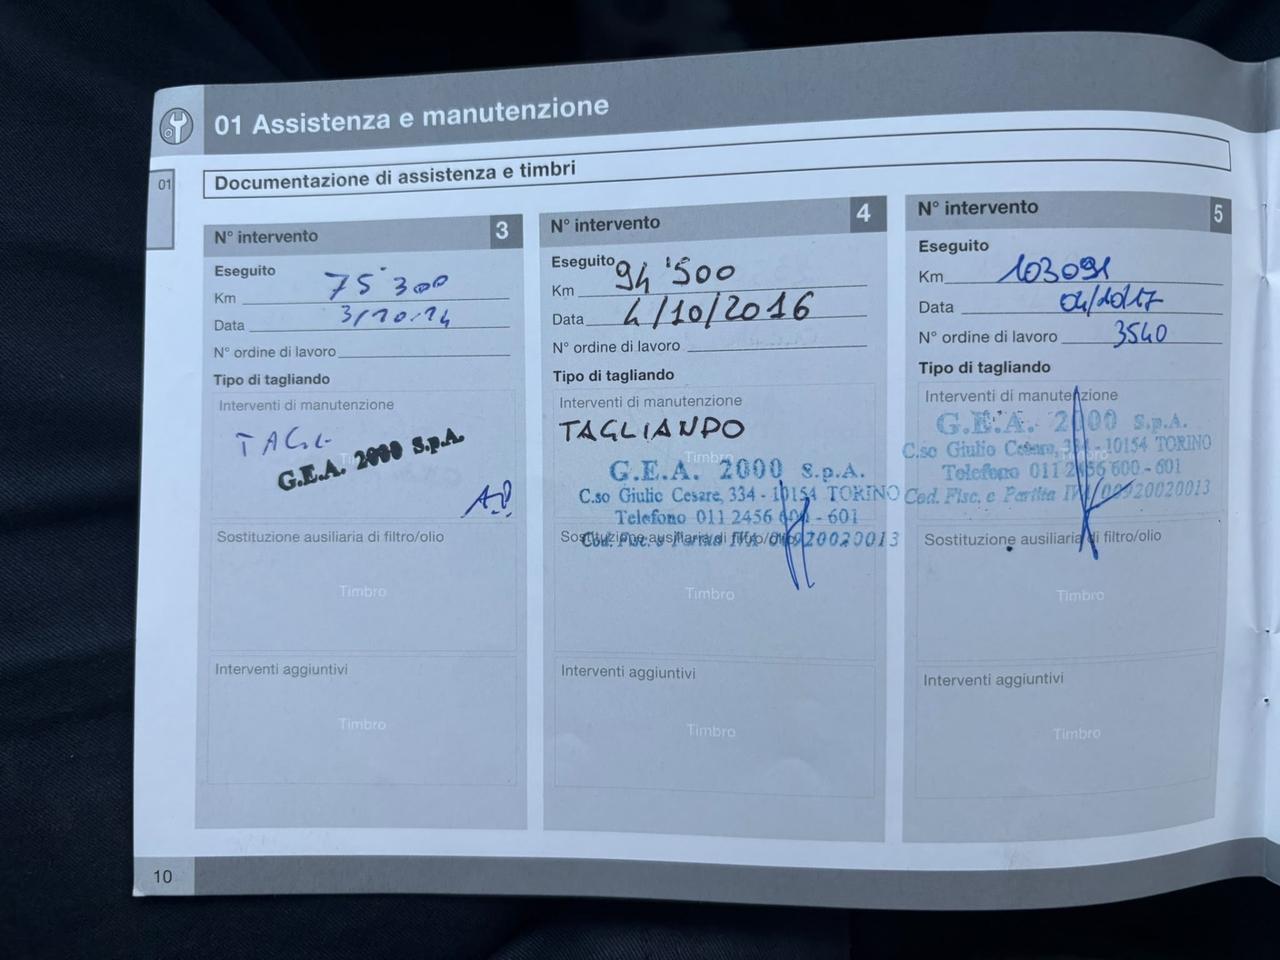 01 Assistenza e manutenzione
01
Documentazione di assistenza e timbri
N° intervento 3
Eseguito
Km 75'300
Data 3/10.14
N° ordine di lavoro
Tipo di tagliando
Interventi di manutenzione
TAGL
G.E.A. 2000 S.p.A.
A.P.
Sostituzione ausiliaria di filtro/olio
Timbro
Interventi aggiuntivi
Timbro
N° intervento 4
Eseguito
Km 94'500
Data 4/10/2016
N° ordine di lavoro
Tipo di tagliando
Interventi di manutenzione
TAGLIANDO
Timbro
G.E.A. 2000 S.p.A.
C.so Giulio Cesare, 334 - 10154 TORINO
Telefono 011 2456 600 - 601
Cod. Fisc. e Partita IVA 00920020013
Sostituzione ausiliaria di filtro/olio
Timbro
Interventi aggiuntivi
Timbro
N° intervento 5
Eseguito
Km 103091
Data 04/10/17
N° ordine di lavoro 3540
Tipo di tagliando
Interventi di manutenzione
G.E.A. 2000 S.p.A.
C.so Giulio Cesare, 334 - 10154 TORINO
Telefono 011 2456 600 - 601
Cod. Fisc. e Partita IVA 00920020013
Sostituzione ausiliaria di filtro/olio
Timbro
Interventi aggiuntivi
Timbro
10